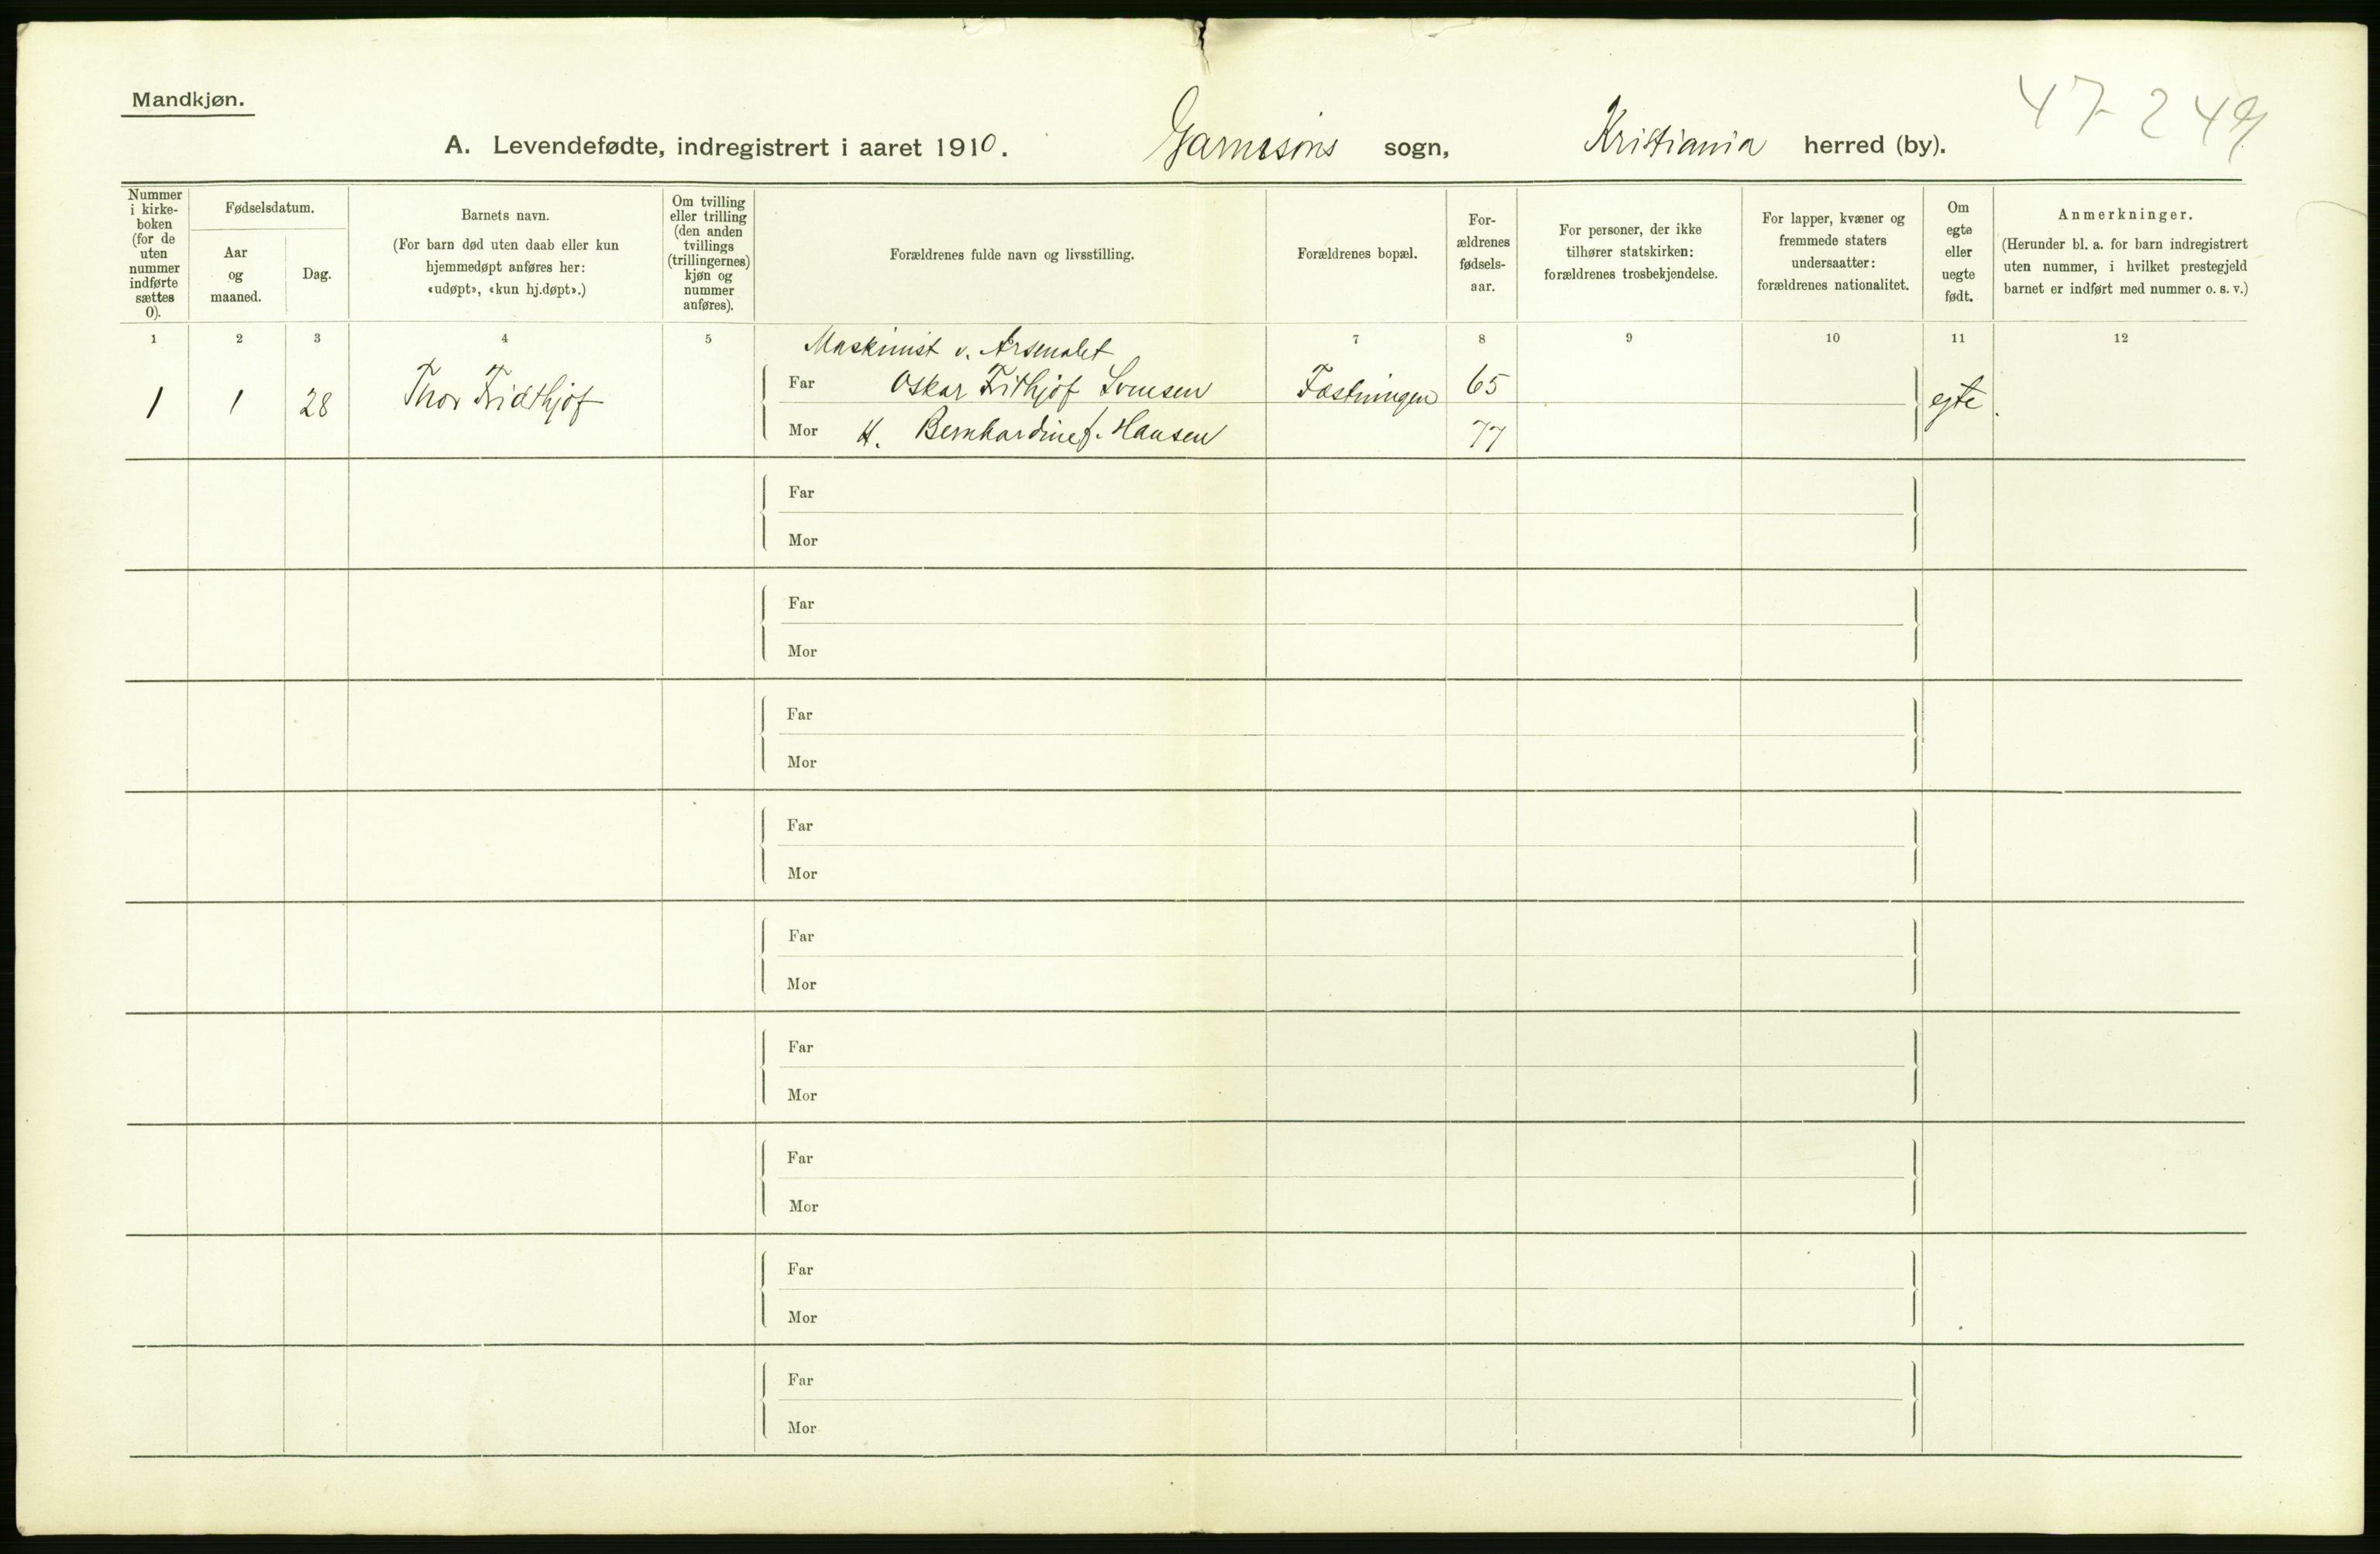 Mandkjøn.
47-249
A. Levendefødte, indregistrert i aaret 1910. Garnisons sogn, Kristiania herred (by).
Nummer
i kirke-
boken
(for de
uten
nummer
indførte
sættes
0).
Fødselsdatum.
Aar
og
maaned.
Dag.
Barnets navn.
(For barn død uten daab eller kun
hjemmedøpt anføres her:
«udøpt», «kun hj.døpt».)
Om tvilling
eller trilling
(den anden
tvillings
(trillingernes)
kjøn og
nummer
anføres).
Forældrenes fulde navn og livsstilling.
Forældrenes bopæl.
For-
ældrenes
fødsels-
aar.
For personer, der ikke
tilhører statskirken:
forældrenes trosbekjendelse.
For lapper, kvæner og
fremmede staters
undersaatter:
forældrenes nationalitet.
Om
egte
eller
uegte
født.
Anmerkninger.
(Herunder bl. a. for barn indregistrert
uten nummer, i hvilket prestegjeld
barnet er indført med nummer o. s. v.)
1 2 3 4 5 7 8 9 10 11 12
Maskinist v. Arsenalet
1 1 28 Thor Fridthjof Far Oskar Frithjof Fæstningen 65 egte.
Mor H. Bernhardine f. Hansen 77
Far
Mor
Far
Mor
Far
Mor
Far
Mor
Far
Mor
Far
Mor
Far
Mor
Far
Mor
Far
Mor